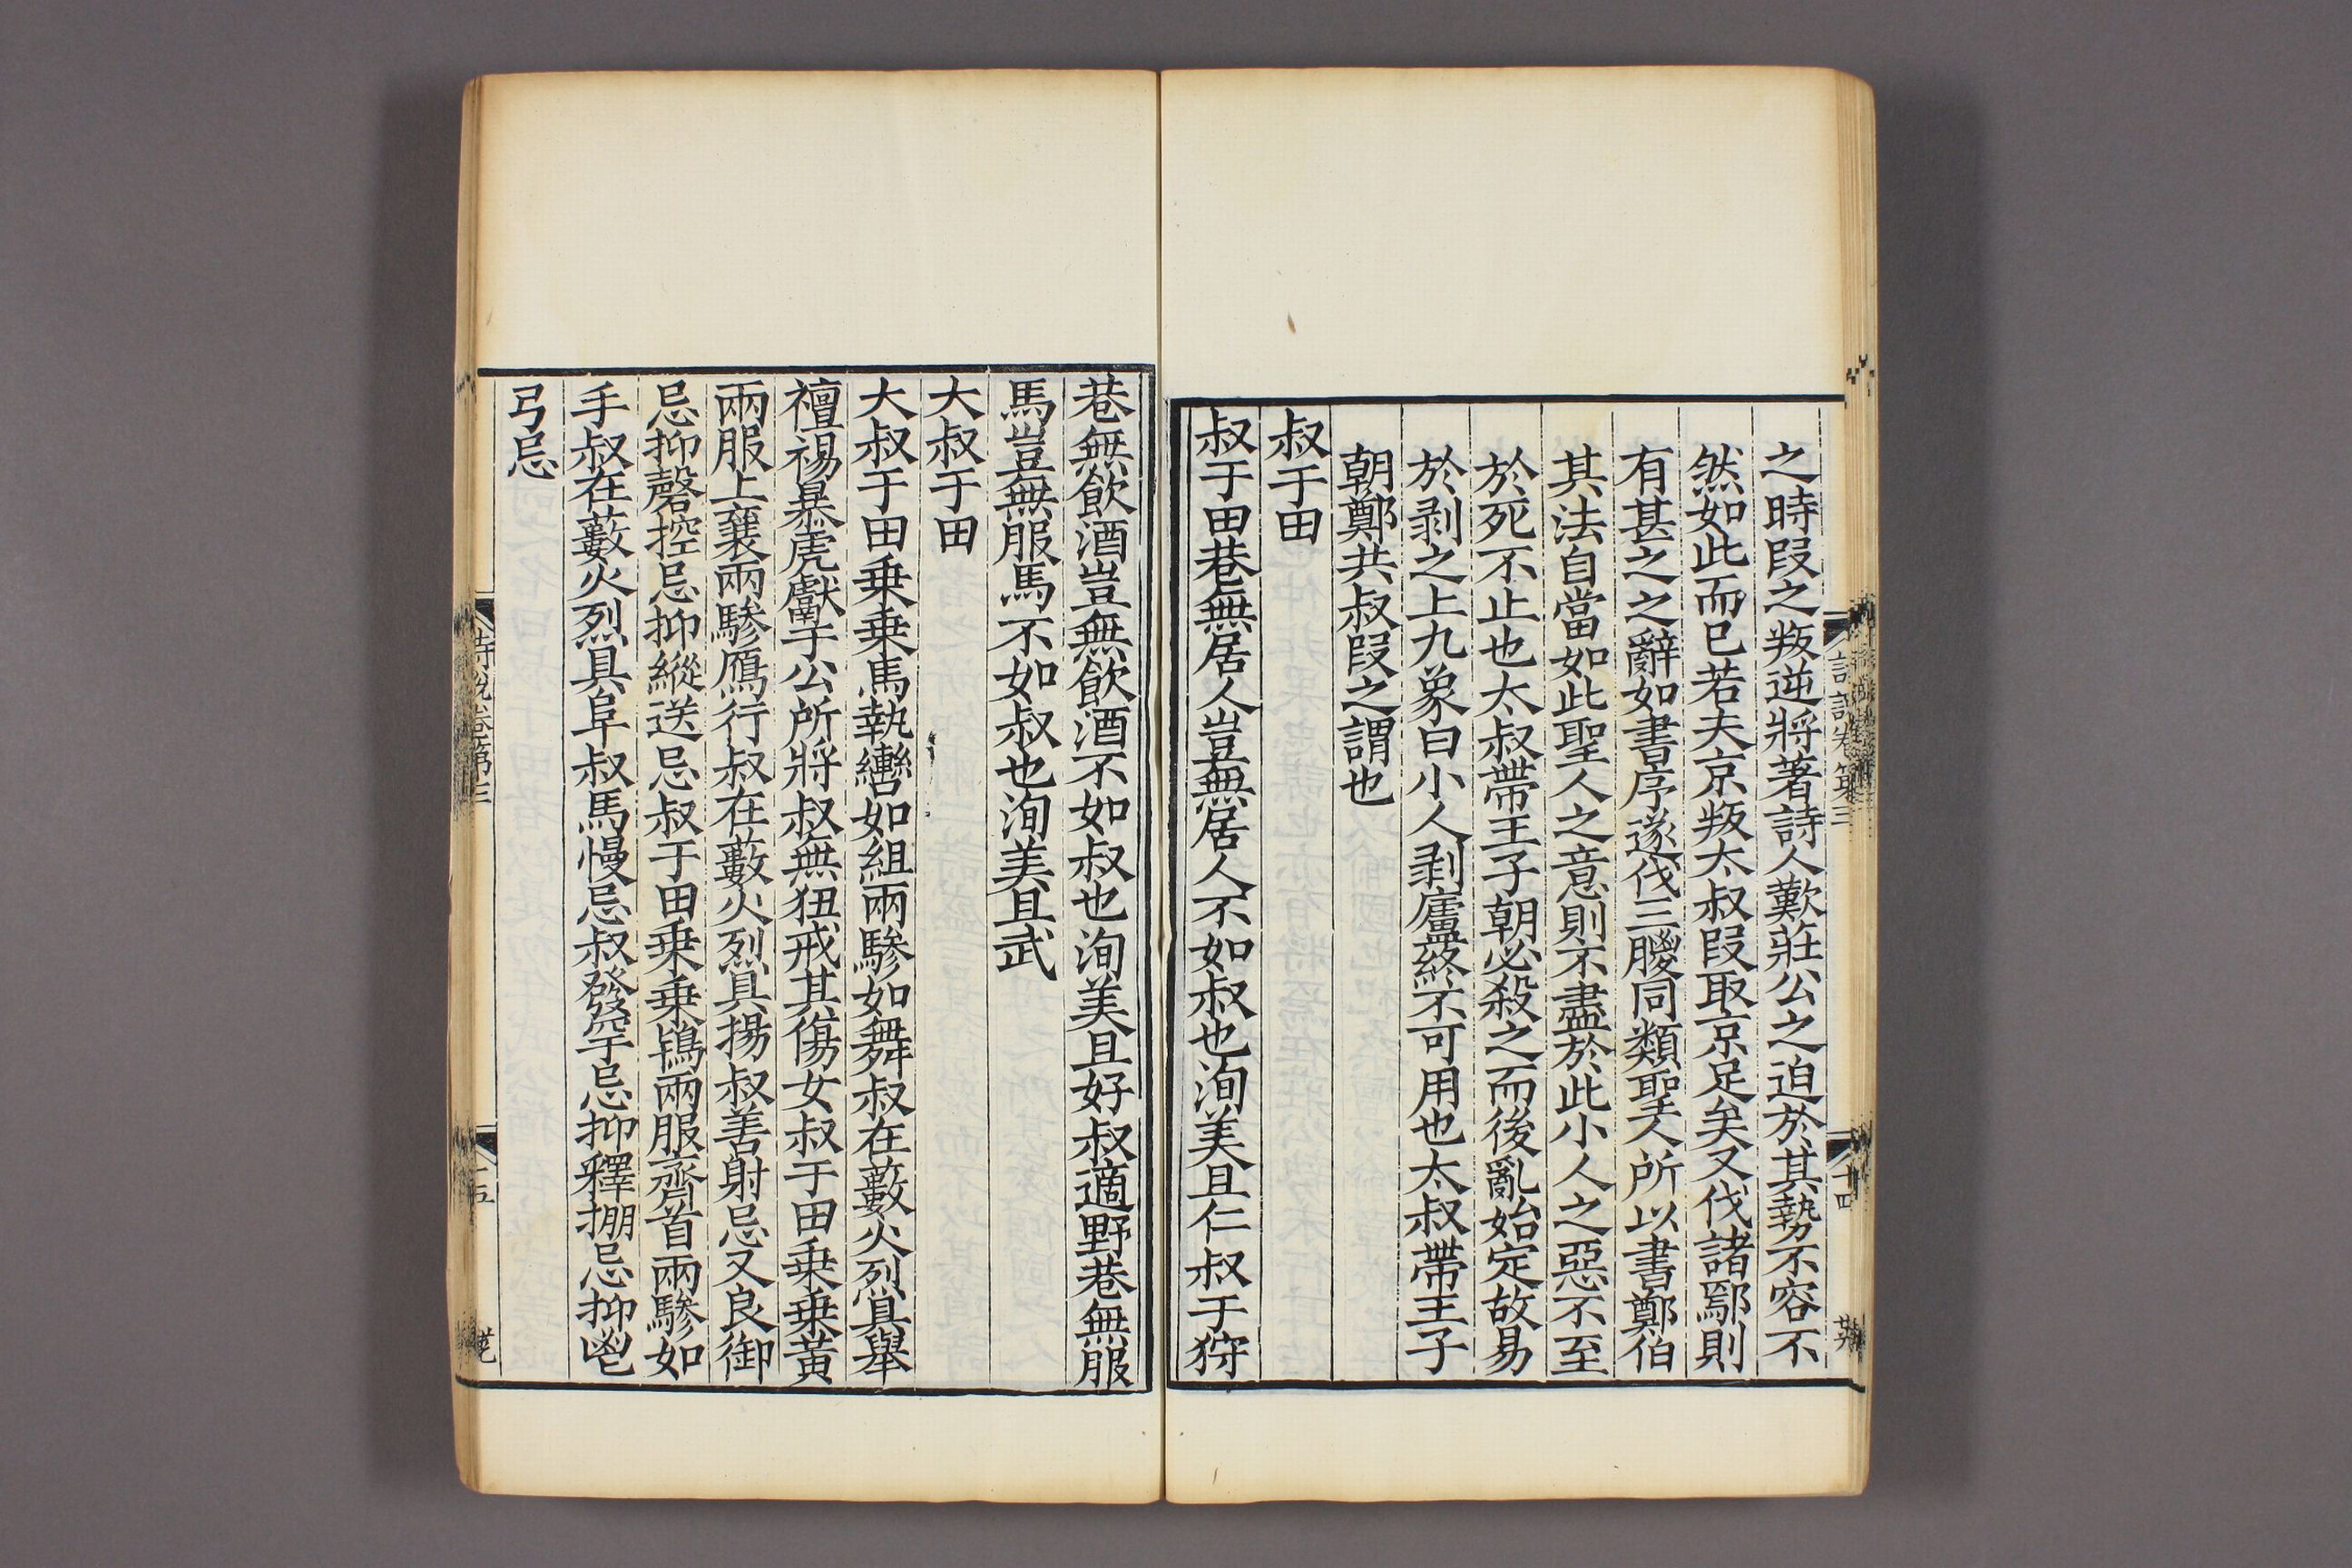 之時叚之叛逆將著詩人歎莊公之迫於其勢不容不
然如此而已若夫京叛太叔叚取京足矣又伐諸鄢則
有甚之之辭如書序遂伐三朡同類聖人所以書鄭伯
其法自當如此聖人之意則不盡於此小人之惡不至
於死不止也太叔帶王子朝必殺之而後亂始定故易
於剥之上九象曰小人剥廬終不可用也太叔帶王子
朝鄭共叔叚之謂也
叔于田
叔于田巷無居人豈無居人不如叔也洵美且仁叔于狩
巷無飲酒豈無飲酒不如叔也洵美且好叔適野巷無服
馬豈無服馬不如叔也洵美且武
大叔于田
大叔于田乗乗馬執轡如組兩驂如舞叔在藪火烈具舉
襢裼暴虎獻于公所將叔無狃戒其傷女叔于田乗乗黃
兩服上襄兩驂鴈行叔在藪火烈具揚叔善射忌又良御
忌抑磬控忌抑縱送忌叔于田乗乗鴇兩服齊首兩驂如
手叔在藪火烈具阜叔馬慢忌叔發罕忌抑釋掤忌抑鬯
弓忌
詩說卷第三
十四
詩說卷第三
十五